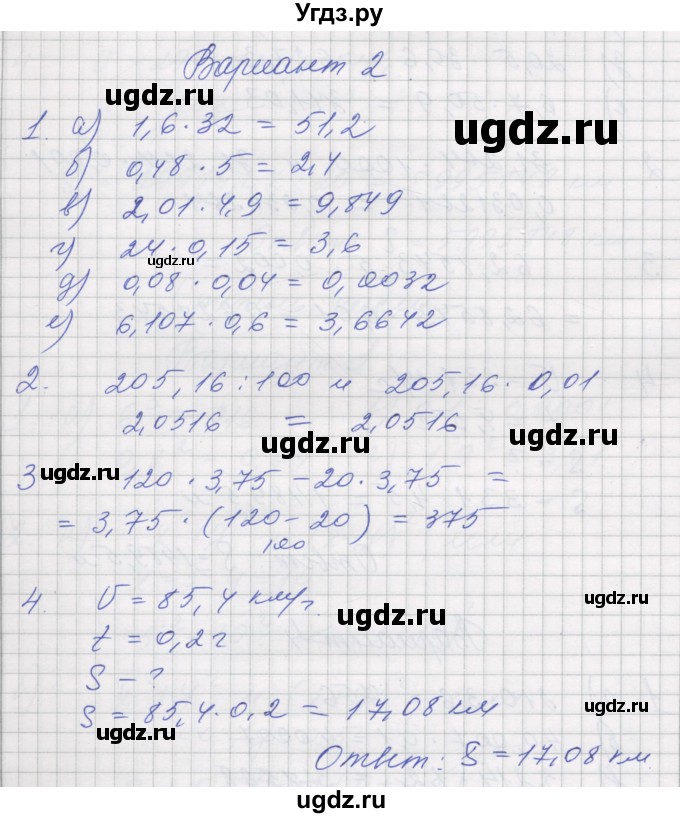 Угдз.ру
Вариант 2
1. а) 1,6 · 32 = 51,2
б) 0,48 · 5 = 2,4
в) 2,01 · 4,9 = 9,849
г) 24 · 0,15 = 3,6
д) 0,08 · 0,04 = 0,0032
е) 6,107 · 0,6 = 3,6642
2. 205,16 : 100 и 205,16 · 0,01
2,0516 = 2,0516
3 120 · 3,75 - 20 · 3,75 =
= 3,75 · (120 - 20) = 375
100
4. V = 85,4 км/ч.
t = 0,2 ч
S - ?
S = 85,4 · 0,2 = 17,08 км
Ответ: S = 17,08 км.
ugdz.ru
ugdz.ru
ugdz.ru
ugdz.ru
ugdz.ru
ugdz.ru
ugdz.ru
ugdz.ru
ugdz.ru
ugdz.ru
ugdz.ru
ugdz.ru
ugdz.ru